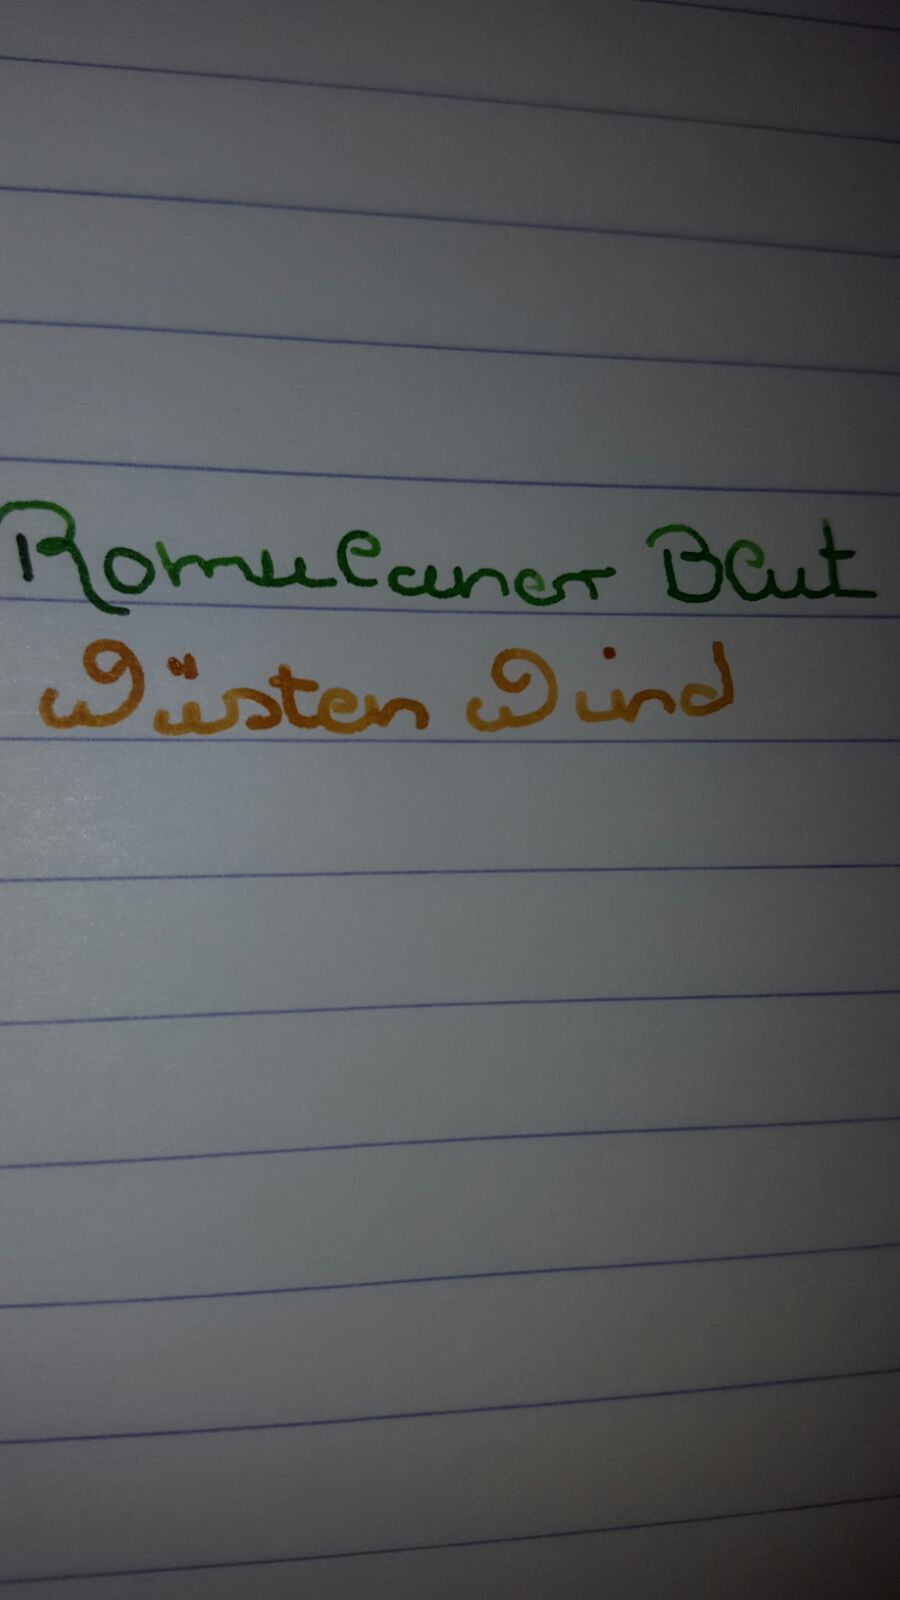 Romulaner Blut
Wüsten Wind